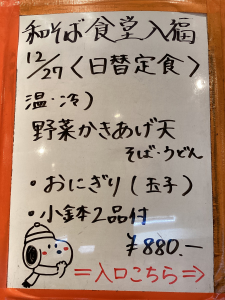 和そば食堂入福
12/27〈日替定食〉
温・冷)
野菜かきあげ天
そば・うどん
・おにぎり(玉子)
・小鉢2品付
¥880.—
=入口こちら⇒